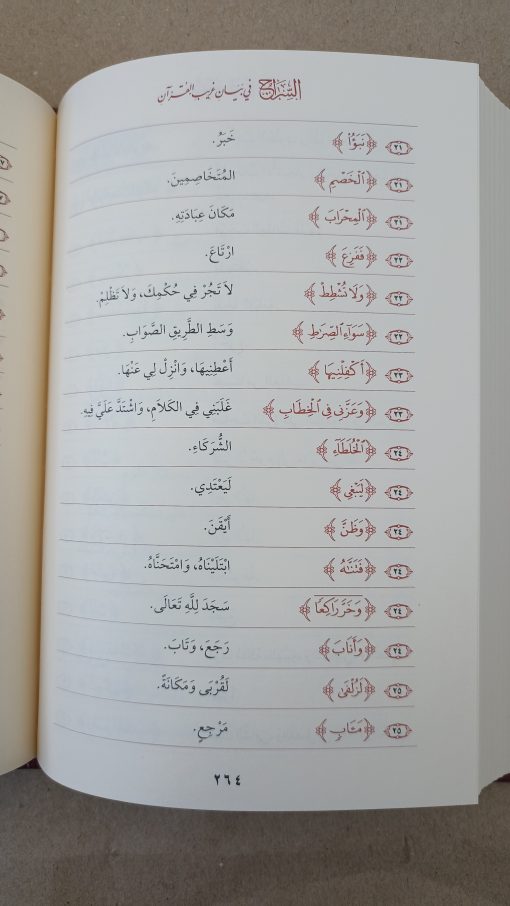 السِّرَاجُ فِي بَيَانِ غَرِيبِ القُرْآنِ
٢١ ﴿نَبَؤُا۟﴾ خَبَرُ.
٢١ ﴿ٱلْخَصْمِ﴾ المُتَخَاصِمِينَ.
٢١ ﴿ٱلْمِحْرَابَ﴾ مَكَانَ عِبَادَتِهِ.
٢٢ ﴿فَفَزِعَ﴾ ارْتَاعَ.
٢٢ ﴿وَلَا تُشْطِطْ﴾ لَا تَجُرْ فِي حُكْمِكَ، وَلَا تَظْلِمْ.
٢٢ ﴿سَوَآءِ ٱلصِّرَٰطِ﴾ وَسَطِ الطَّرِيقِ الصَّوَابِ.
٢٣ ﴿أَكْفِلْنِيهَا﴾ أَعْطِنِيهَا، وَانْزِلْ لِي عَنْهَا.
٢٣ ﴿وَعَزَّنِى فِى ٱلْخِطَابِ﴾ غَلَبَنِي فِي الكَلَامِ، وَاشْتَدَّ عَلَيَّ فِيهِ.
٢٤ ﴿ٱلْخُلَطَآءِ﴾ الشُّرَكَاءِ.
٢٤ ﴿لَيَبْغِى﴾ لَيَعْتَدِي.
٢٤ ﴿وَظَنَّ﴾ أَيْقَنَ.
٢٤ ﴿فَتَنَّٰهُ﴾ ابْتَلَيْنَاهُ، وَامْتَحَنَّاهُ.
٢٤ ﴿وَخَرَّ رَاكِعًا﴾ سَجَدَ لِلَّهِ تَعَالَى.
٢٤ ﴿وَأَنَابَ﴾ رَجَعَ، وَتَابَ.
٢٥ ﴿لَزُلْفَىٰ﴾ لَقُرْبَى وَمَكَانَةً.
٢٥ ﴿مَـَٔابٍ﴾ مَرْجِعٍ.
٢٦٤